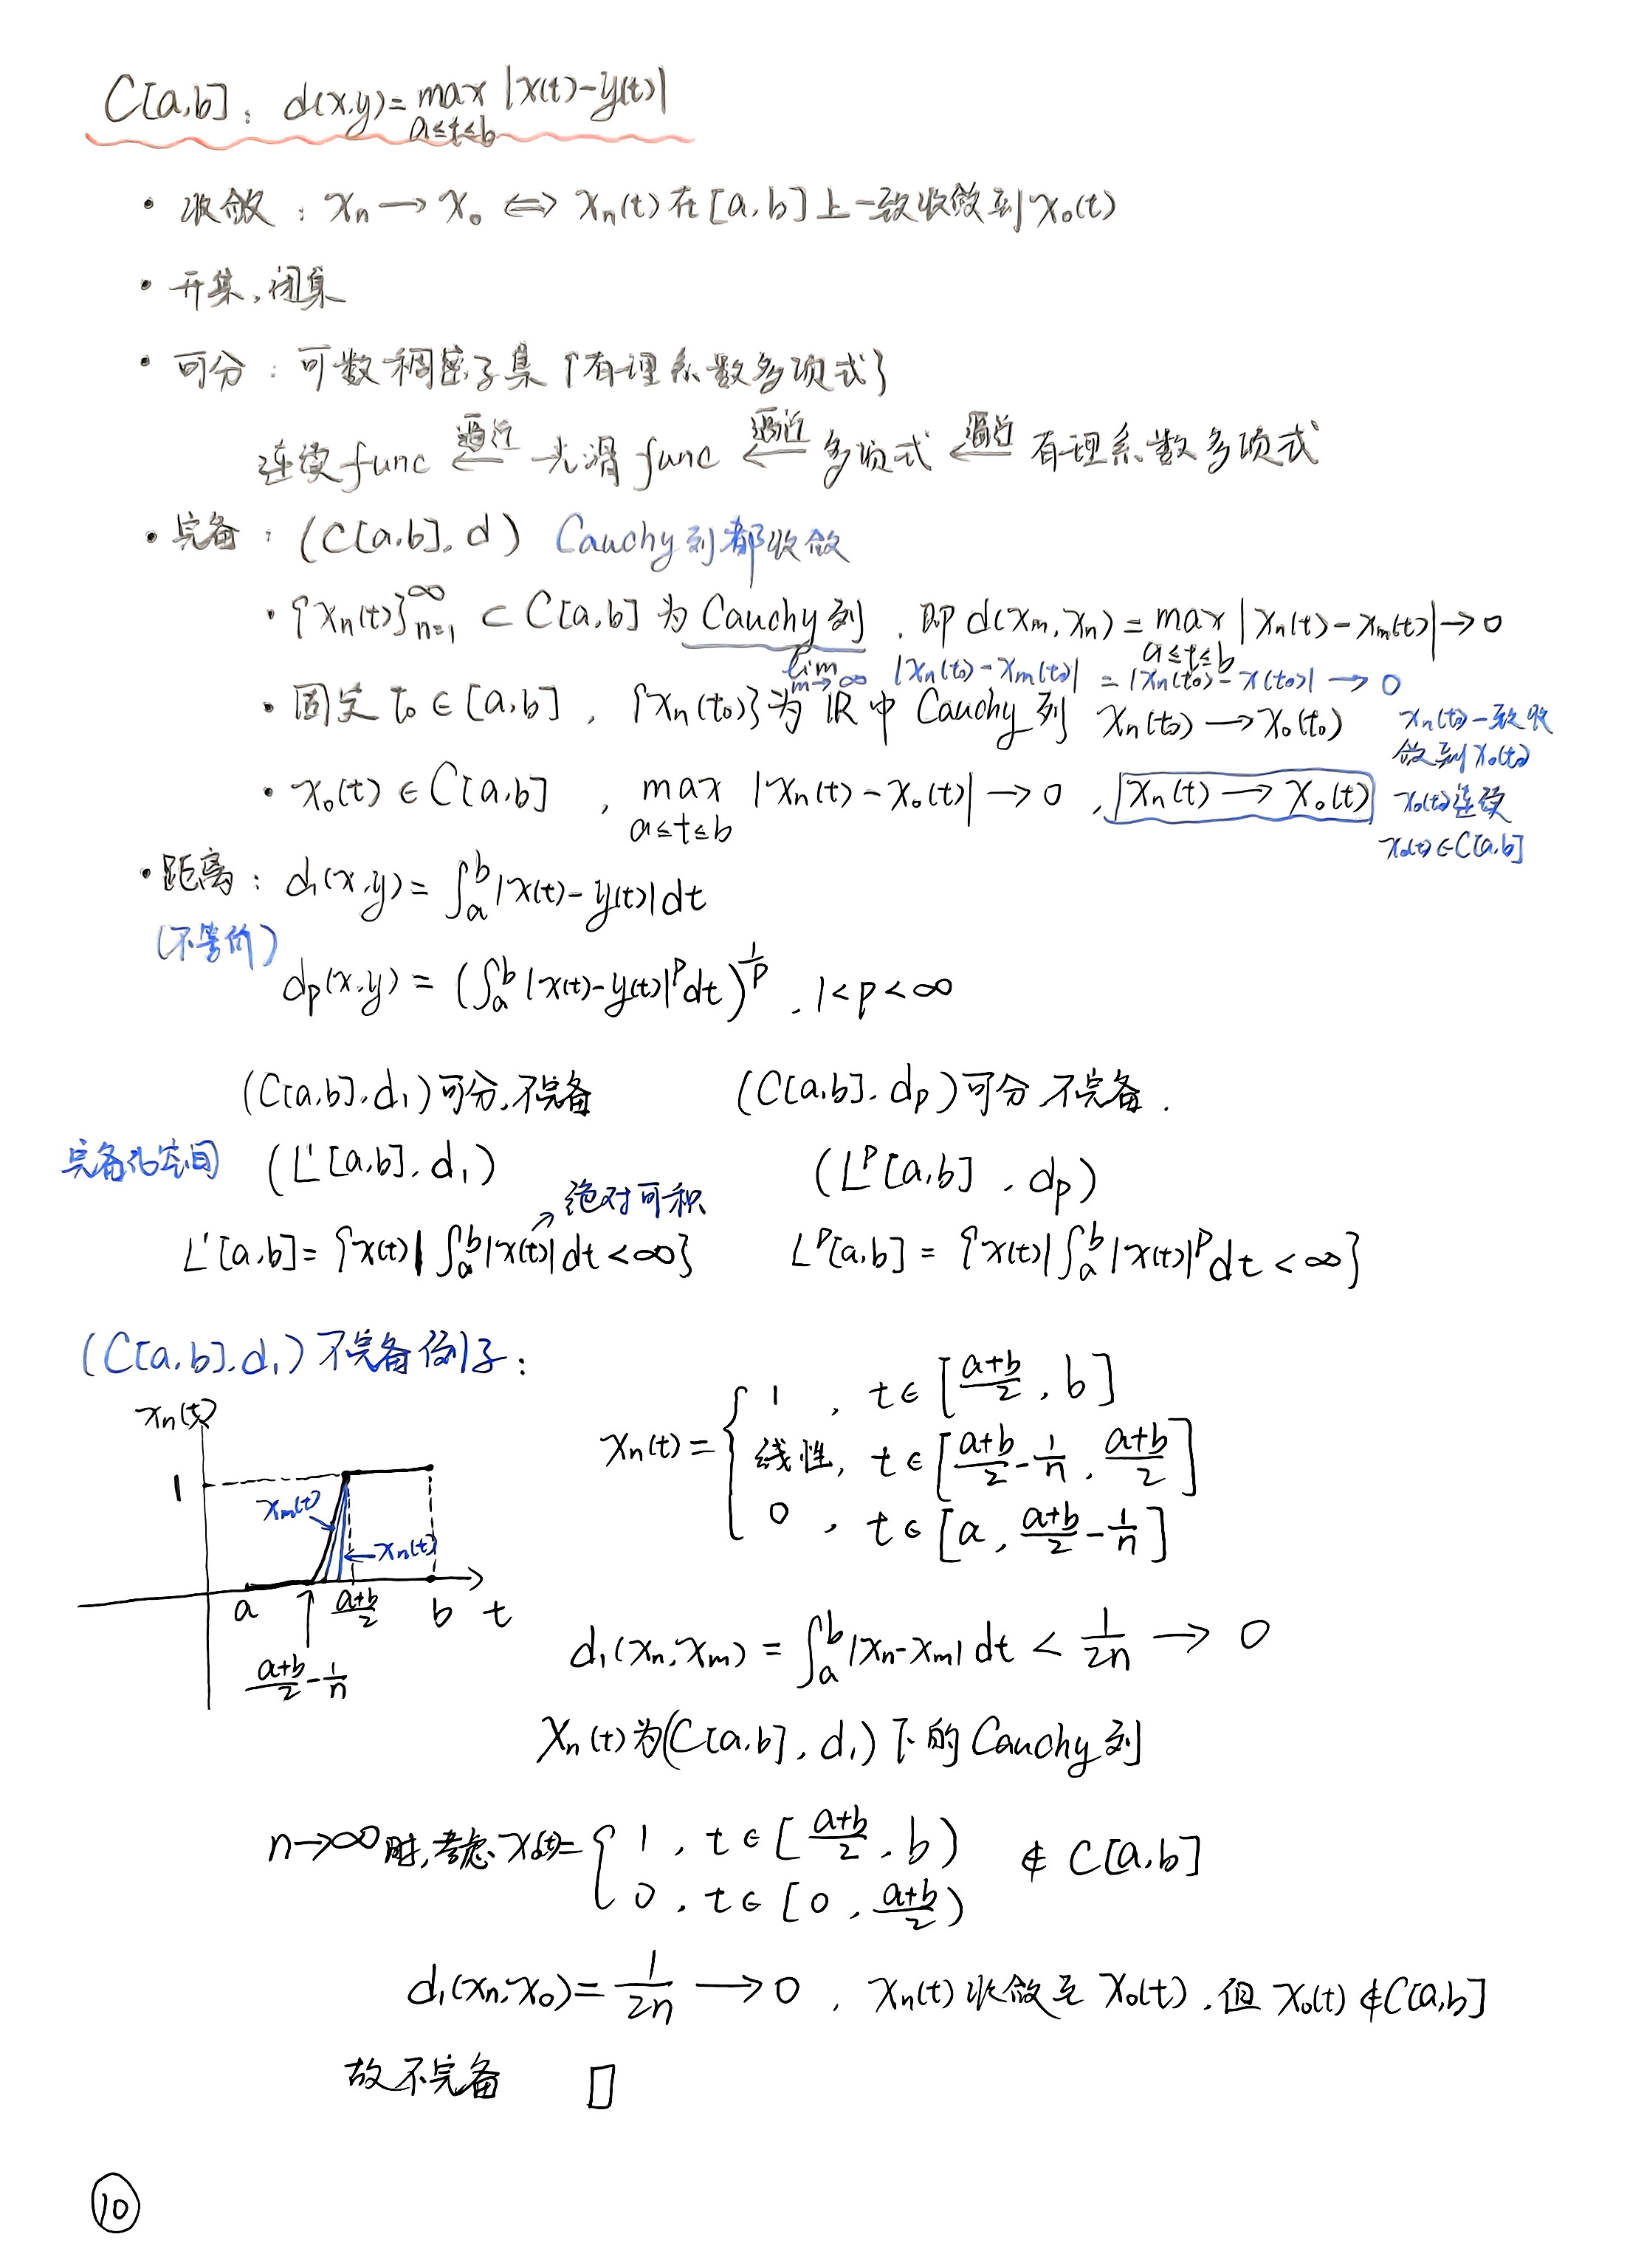 C[a,b]: d(x,y)=max |x(t)-y(t)|
a≤t≤b
• 收敛: xₙ → x₀ ⇔ xₙ(t)在[a,b]上一致收敛到x₀(t)
• 开集,闭集
• 可分: 可数稠密子集{有理系数多项式}
连续func ⇐逼近 光滑func ⇐逼近 多项式 ⇐逼近 有理系数多项式
• 完备: (C[a,b], d) Cauchy列都收敛
• {xₙ(t)}ₙ₌₁^∞ ⊂ C[a,b] 为 Cauchy列, 即 d(xₘ,xₙ)=max |xₙ(t)-xₘ(t)|→0
a≤t≤b
lim |xₙ(t₀)-xₘ(t₀)| = |xₙ(t₀)-x(t₀)| → 0
m→∞
• 固定 t₀∈[a,b], {xₙ(t₀)}为 ℝ中 Cauchy列 xₙ(t₀)→x₀(t₀)
xₙ(t)一致收
敛到x₀(t)
• x₀(t)∈C[a,b], max |xₙ(t)-x₀(t)|→0, xₙ(t)→x₀(t)
a≤t≤b
x₀(t)连续
x₀(t)∈C[a,b]
• 距离: d₁(x,y)= ∫ₐᵇ|x(t)-y(t)|dt
(不等价)
dₚ(x,y)= (∫ₐᵇ|x(t)-y(t)|ᵖdt)^(1/p), 1<p<∞
(C[a,b],d₁)可分,不完备 (C[a,b], dₚ)可分 不完备.
完备化空间 (L¹[a,b], d₁) (Lᵖ[a,b], dₚ)
↗绝对可积
L¹[a,b]={x(t)| ∫ₐᵇ|x(t)|dt<∞} Lᵖ[a,b]={x(t)|∫ₐᵇ|x(t)|ᵖdt<∞}
(C[a,b],d₁)不完备例子:
xₙ(t)
1
xₘ(t)
xₙ(t)
a
(a+b)/2
b
t
(a+b)/2-1/n
xₙ(t)={ 1, t∈[(a+b)/2, b]
线性, t∈[(a+b)/2-1/n, (a+b)/2]
0, t∈[a, (a+b)/2-1/n]
d₁(xₙ,xₘ)=∫ₐᵇ|xₙ-xₘ|dt < 1/2n → 0
xₙ(t)为(C[a,b],d₁)下的Cauchy列
n→∞时,考虑x₀(t)={ 1, t∈[(a+b)/2, b) ∉ C[a,b]
0, t∈[0, (a+b)/2)
d₁(xₙ,x₀)=1/2n → 0, xₙ(t)收敛至x₀(t),但x₀(t)∉C[a,b]
故不完备 □
10